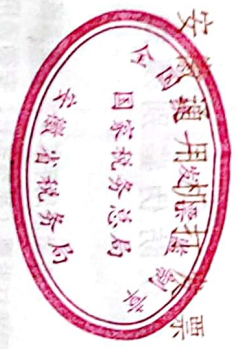 安徽通用机打发票
全国统一发票监制章
国家税务总局
安徽省税务局